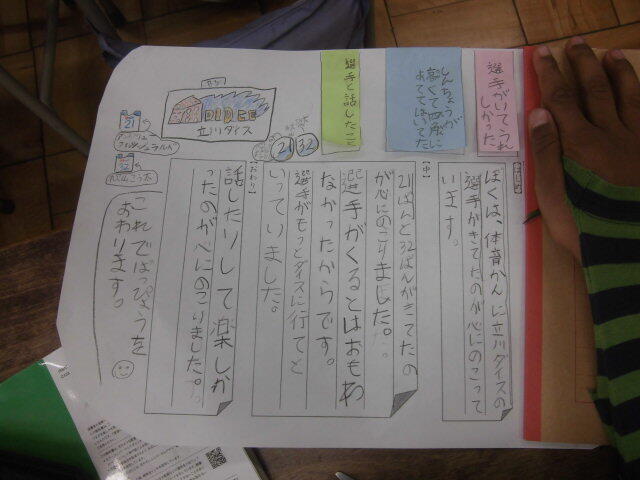 選手がいてうれ
しかった
しんちょうが
高くて四角に
あててはいてた
選手と話したこと
ぼくは、体育かんに立川ダイスの
選手がきてたのが心にのこって
います。
【中】
21ばんと32ばんがきてたの
が心にのこりました。
選手がくるとはおもわ
なかったからです。
選手がもっとダイスに行てと
いっていました。
【おわり】
話したりして楽しか
ったのが心にのこりました。
これではっぴょうを
おわります。
DICE
立川ダイス
21
32
21